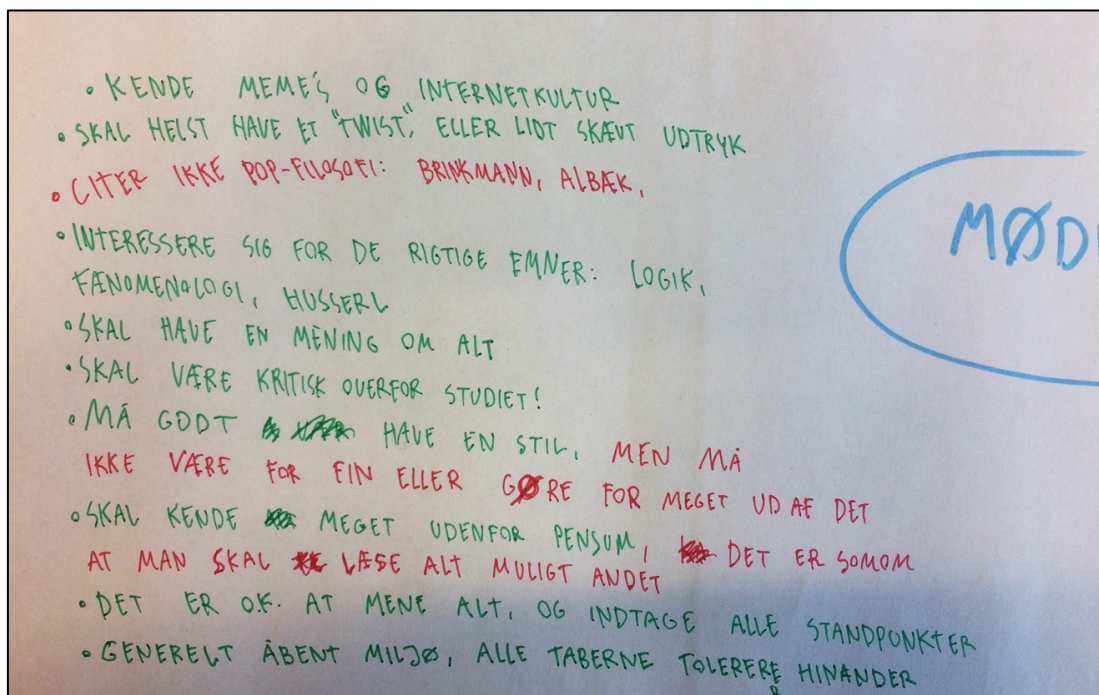 • KENDE MEME'S OG INTERNETKULTUR
• SKAL HELST HAVE ET "TWIST", ELLER LIDT SKÆVT UDTRYK
• CITER IKKE POP-FILOSOFI: BRINKMANN, ALBÆK,
• INTERESSERE SIG FOR DE RIGTIGE EMNER: LOGIK,
FÆNOMENOLOGI, HUSSERL
• SKAL HAVE EN MENING OM ALT
• SKAL VÆRE KRITISK OVERFOR STUDIET!
• MÅ GODT HAVE EN STIL, MEN MÅ
IKKE VÆRE FOR FIN ELLER GØRE FOR MEGET UD AF DET
• SKAL KENDE MEGET UDENFOR PENSUM, DET ER SOMOM
AT MAN SKAL LÆSE ALT MULIGT ANDET
• DET ER O.K. AT MENE ALT, OG INDTAGE ALLE STANDPUNKTER
• GENERELT ÅBENT MILJØ, ALLE TABERNE TOLERERER HINANDER
MØD